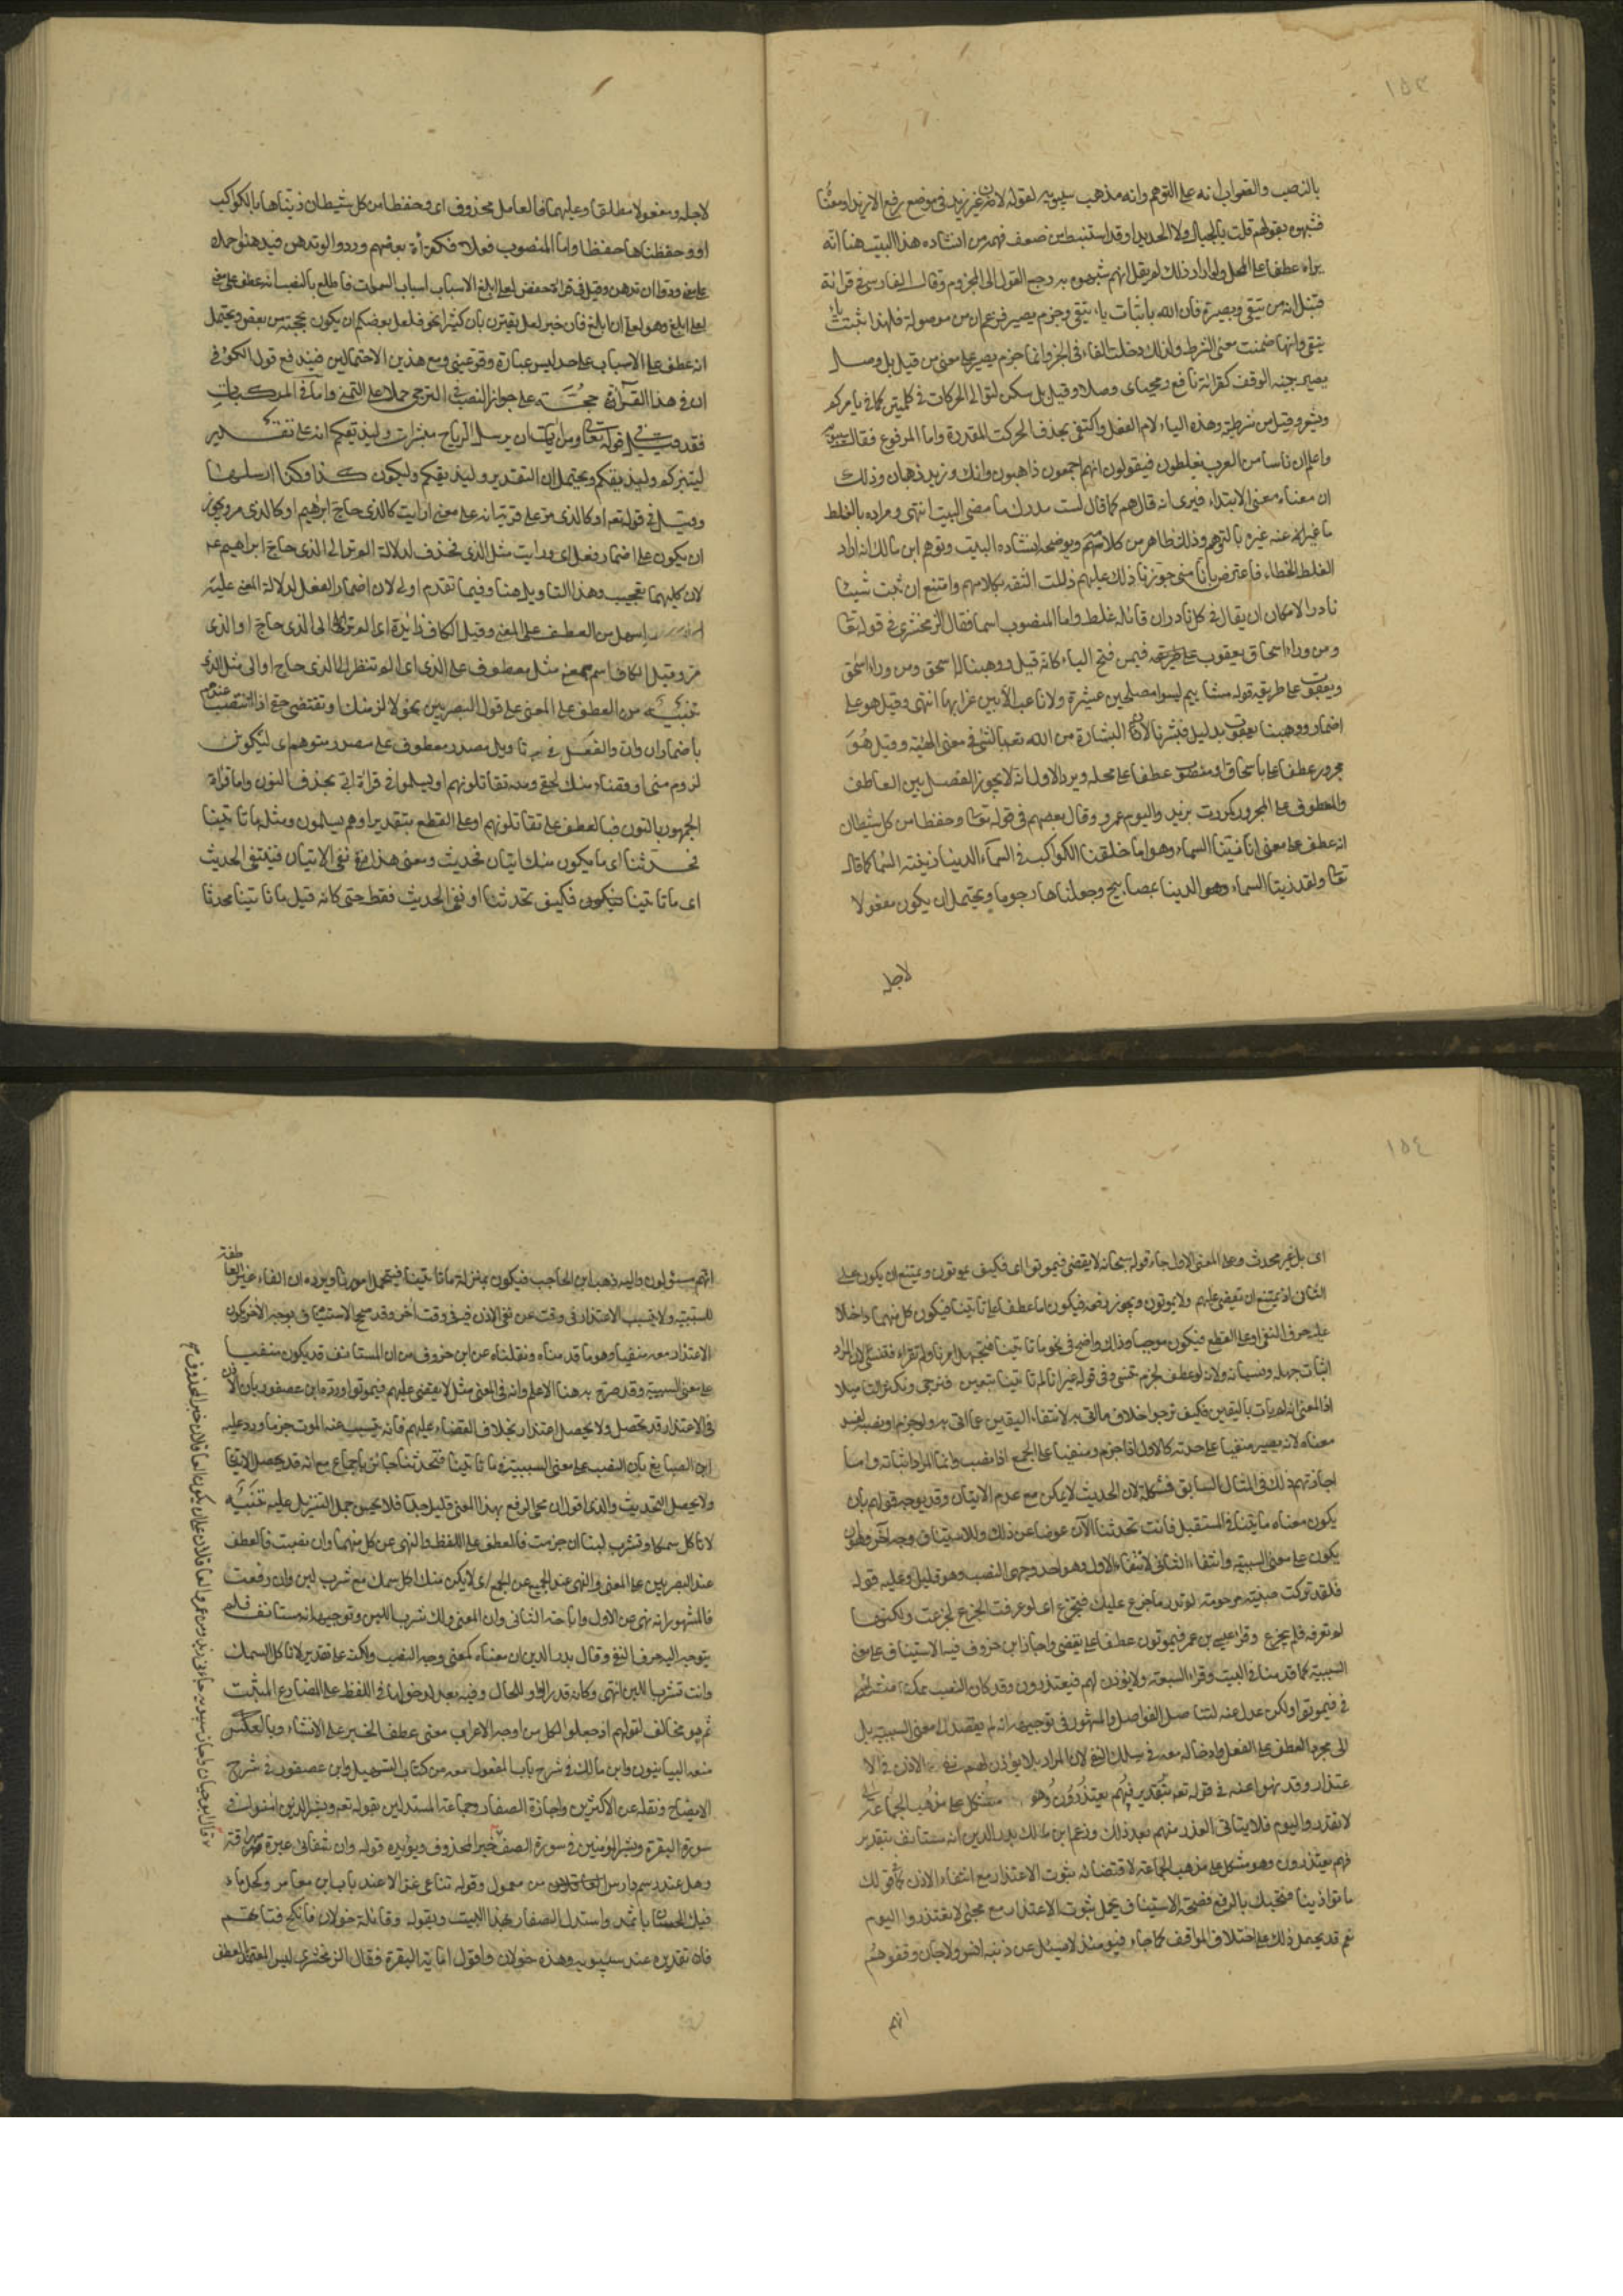 ١٥٣
بالنصب والصواب انه على التوهم وانه مذهب سيبويه لقوله لان غير زيد في موضع رفع الا زيد او معنا
فشبهوه بقولهم فلسنا بالجبال ولا الحديدا وقد استنبط من ضعف فهمه من انشاده هذا البيت هنا انه
يراه عطفا على المحل ولو اراد ذلك لم يقل انهم شبهوه به رجع القول الى المجزوم وقال الفارسي في قرائة
قنبل انه من يتقي ويصبر فان الله باثبات ياء يتقي وجزم يصبر فزعم ان من موصولة فلهذا ثبتت ياء
يتقي وانها ضمنت معنى الشرط ولذلك دخلت الفاء في الخبر وانما جزم يصبر على معنى من قيل بل وصل
يصبر بنية الوقف كقرائة نافع ومحياي وصلا وقيل بل سكن لتوالي الحركات في كلمتين كما في يأمركم
ويشعركم وقيل من شرطية وهذه الياء لام الفعل واكتفى بحذف الحركة المقدرة واما المرفوع فقال سيبويه
واعلم ان ناسا من العرب يغلطون فيقولون انهم اجمعون ذاهبون وانك وزيد ذهبان وذلك
ان معناه معنى الابتداء فيرى انه قال هم كما قال لست مدرك ما مضى البيت انتهى ومراده بالغلط
ما عبر عنه غيره بالتوهم وذلك ظاهر من كلامهم ويوضحه انشاده البيت وتوهم ابن مالك انه اراد
الغلط الخطاء فاعترض بانا متى جوزنا ذلك عليهم زالت الثقة بكلامهم وامتنع ان نثبت شيئا
نادرا لامكان ان يقال في كل نادر ان قائله غلط واما المنصوب اسما فقال الزمخشري في قوله تعا
ومن وراء اسحاق يعقوب فيمن فتح الباء كانه قيل ووهبنا له اسحق ومن وراء اسحق
ويعقوب على طريقة قوله مشائيم ليسوا مصلحين عشيرة ولا ناعب الا ببين غرابها انتهى وقيل هو على
اضمار ووهبنا يعقوب بدليل فبشرناها لان البشارة من الله تعالى بالشئ في معنى الهبة وقيل هو
مجرور عطفا على باسحاق او منصوب عطفا على محله ويرد الاول انه لا يجوز الفصل بين العاطف
والمعطوف على المجرور كمررت بزيد واليوم عمرو وقال بعضهم في قوله تعا وحفظا من كل شيطان
انه عطف على معنى انا زينا السماء وهو انا خلقنا الكواكب في السماء الدنيا زينة للسماء كما قال
تعا ولقد زينا السماء الدنيا بمصابيح وجعلناها رجوما ويحتمل ان يكون مفعولا
لاجله
لاجله ومفعولا مطلقا وعليهما فالعامل محذوف اي وحفظا من كل شيطان زيناها بالكواكب
او وحفظناها حفظا واما المنصوب فعلا فكقرأة بعضهم ودوا لو تدهن فيدهنوا حملا
على معنى ودوا ان تدهن وقيل في قراة حفص لعلي ابلغ الاسباب اسباب السموات فاطلع بالنصب انه عطف على معنى
لعلي ابلغ وهو لعلي ان ابلغ فان خبر لعل يقترن بان كثيرا نحو فلعل بعضكم ان يكون بحجته من بعض ويحتمل
انه عطف على الاسباب على حد لبس عباءة وتقر عيني ومع هذين الاحتمالين فيندفع قول الكوفي
ان في هذا القرآن حجة على جواز النصب في الترجي حملا على التمني واما في المركبات
فقد قيل في قوله تعالى ومن اياته ان يرسل الرياح مبشرات وليذيقكم انه على تقدير
ليبشركم وليذيقكم ويحتمل ان التقدير وليذيقكم وليكون كذا وكذا ارسلها
وقيل في قوله تعه او كالذي مر على قرية انه على معنى ارايت كالذي حاج ابراهيم او كالذي مر ويجوز
ان يكون على اضمار فعل اي ورايت مثل الذي فحذف لدلالة الم تر الى الذي حاج ابراهيم عم
لان كليهما تعجيب وهذا التاويل هنا وفيما تقدم اولى لان اضمار الفعل لدلالة المعنى عليه
اسهل من العطف على المعنى وقيل الكاف زائدة اي الم تر الى الذي حاج او الذي
مر وقيل الكاف اسم بمعنى مثل معطوف على الذي اي الم تنظر الى الذي حاج او الى مثل الذي
تنبيه من العطف على المعنى على قول البصريين نحو لالزمنك او تقتضي حقي اذ النصب عندهم
باضمار ان وان والفعل في تاويل مصدر معطوف على مصدر متوهم اي ليكونن
لزوم مني او قضاء منك لحقي ومنه تقاتلونهم او يسلموا في قراة ابي بحذف النون واما قراة
الجمهور بالنون فبالعطف على تقاتلونهم او على القطع بتقدير او هم يسلمون ومثله ما تاتينا
فتحدثنا اي ما يكون منك اتيان فتحديث ومعنى هذا نفي الاتيان فينتفي الحديث
اي ما تاتينا فكيف تحدثنا او نفي الحديث فقط حتى كانه قيل ما تاتينا محدثا
١٥٤
اي بل غير محدث وعلى المعنى الاول جاء قوله سبحانه لا يقضى فيموتوا اي فكيف يموتون ويمتنع ان يكون على
الثاني اذ يمتنع ان يقضى عليهم ولا يموتون ويجوز رفعه فيكون اما عطفا على تاتينا فيكون كل منهما داخلا
عليه حرف النفي او على القطع فيكون موجبا وذلك واضح في نحو ما تاتينا فتجهل امرنا ولم تقراء فتنسى لان المراد
اثبات جهله ونسيانه ولانه لو عطف لجزم تنسى وفي قوله غير انا لم تاتينا بيقين فنرجي ونكثر التاميلا
اذ المعنى انه لم يات باليقين فنحن نرجو خلاف ما اتى به لانتفاء اليقين عما اتى به ولو جزم او نصبه لفسد
معناه لانه يصير منفيا على حدته كالاول اذا جزم ومنفيا على الجمع اذا نصب وانما المراد اثباته واما
اجازتهم ذلك في المثال السابق فمشكلة لان الحديث لا يمكن مع عدم الاتيان وقد يوجه قولهم بان
يكون معناه ما تاتينا في المستقبل فانت تحدثنا الآن عوضا عن ذلك وللاستيناف وجه آخر وهو ان
يكون على معنى السببية وانتفاء الثاني لانتفاء الاول وهو احد وجهي النصب وهو قليل وعليه قوله
فلقد تركت صبية مرحومة لم تدر ما جزع عليك فتجزع اي لو عرفت الجزع لجزعت ولكنها
لم تعرفه فلم تجزع وقرا عيسى بن عمر فيموتون عطفا على يقضى واجاز ابن خروف فيه الاستيناف على معنى
السببية كما قدمنا في البيت وقراء السبعة ولا يؤذن لهم فيعتذرون وقد كان النصب ممكنا مثله
في فيموتوا ولكن عدل عنه لتناسب الفواصل والمشهور في توجيهه انه لم يقصد الى معنى السببية بل
الى مجرد العطف على الفعل وادخاله معه في سلك النفي لان المراد بلا يؤذن لهم نفي الاذن في الا
عتذار وقد نهوا عنه في قوله تعه
لا تعتذروا اليوم فلا يتاتى العذر منهم بعد ذلك وزعم ابن مالك بدر الدين انه مستانف بتقدير
فهم يعتذرون وهو مشكل على مذهب الجماعة لاقتضائه ثبوت الاعتذار مع انتفاء الاذن كما في قولك
ما تؤذينا فنحبك بالرفع فصحة الاستيناف يحمل ثبوت الاعتذار مع مجئ لا تعتذروا اليوم
ثم قد يحمل ذلك على اختلاف المواقف كما جاء فيومئذ لا يسئل عن ذنبه انس ولا جان وقفوهم
انهم
انهم مسؤلون واليه ذهب ابن الحاجب فيكون بمنزلة ما تاتينا فتجهل امورنا ويرده ان الفاء غير العاطفة
للسببية ولا يتسبب الاعتذار في وقت عن نفي الاذن فيه في وقت آخر وقد صح الاستيناف بوجه آخر يكون
الاعتذار معه منفيا وهو ما قدمناه ونقلناه عن ابن خروف من ان المستانف قد يكون منفيا
على معنى السببية وقد صرح به هنا الاعلم وانه في المعنى مثل لا يقضى عليهم فيموتوا ورده ابن عصفور بان الاذن
في الاعتذار قد يحصل ولا يحصل اعتذار بخلاف القضاء عليهم فانه يتسبب عنه الموت جزما ورد عليه
ابن الصايغ بان النصب على معنى السببية في ما تاتينا فتحدثنا جائز باجماع مع انه قد يحصل الاتيان
ولا يحصل التحديث والذي اقول ان مجئ الرفع بهذا المعنى قليل جدا فلا يحسن حمل التنزيل عليه تنبيه
لا تاكل سمكا وتشرب لبنا ان جزمت فالعطف على اللفظ والنهي عن كل منهما وان نصبت فالعطف
عند البصريين على المعنى والنهي عند الجميع عن الجمع اي لا يكن منك اكل سمك مع شرب لبن وان رفعت
فالمشهور انه نهي عن الاول واباحة الثاني وان المعنى ولك شرب اللبن وتوجيهه انه مستانف فلم
يتوجه اليه حرف النفي وقال بدر الدين ان معناه كمعنى وجه النصب ولكنه على تقدير لا تاكل السمك
وانت تشرب اللبن انتهى وكانه قدر الواو للحال وفيه بعد لدخولها في اللفظ على المضارع المثبت
ثم هو مخالف لقولهم اذ جعلوا لكل من اوجه الاعراب معنى عطف الخبر على الانشاء وبالعكس
منعه البيانيون وابن مالك في شرح باب المفعول معه من كتاب التسهيل وابن عصفور في شرح
الايضاح ونقله عن الاكثرين واجازه الصفار وجماعة المستدلين بقوله تعه وبشر الذين امنوا في
سورة البقرة وبشر المؤمنين في سورة الصف ويؤيده قوله وان شفائي عبرة مهراقة
وهل عند رسم دارس من معول وقوله تناغي غزالا عند باب ابن عامر وكحل اماء
فيك الحسان باثمد واستدل الصفار بهذا البيت وبقوله وقائلة خولان فانكح فتاتهم
فان تقديره عند سيبويه وهذه خولان واقول اما اية البقرة فقال الزمخشري ليس المعتمد بالعطف